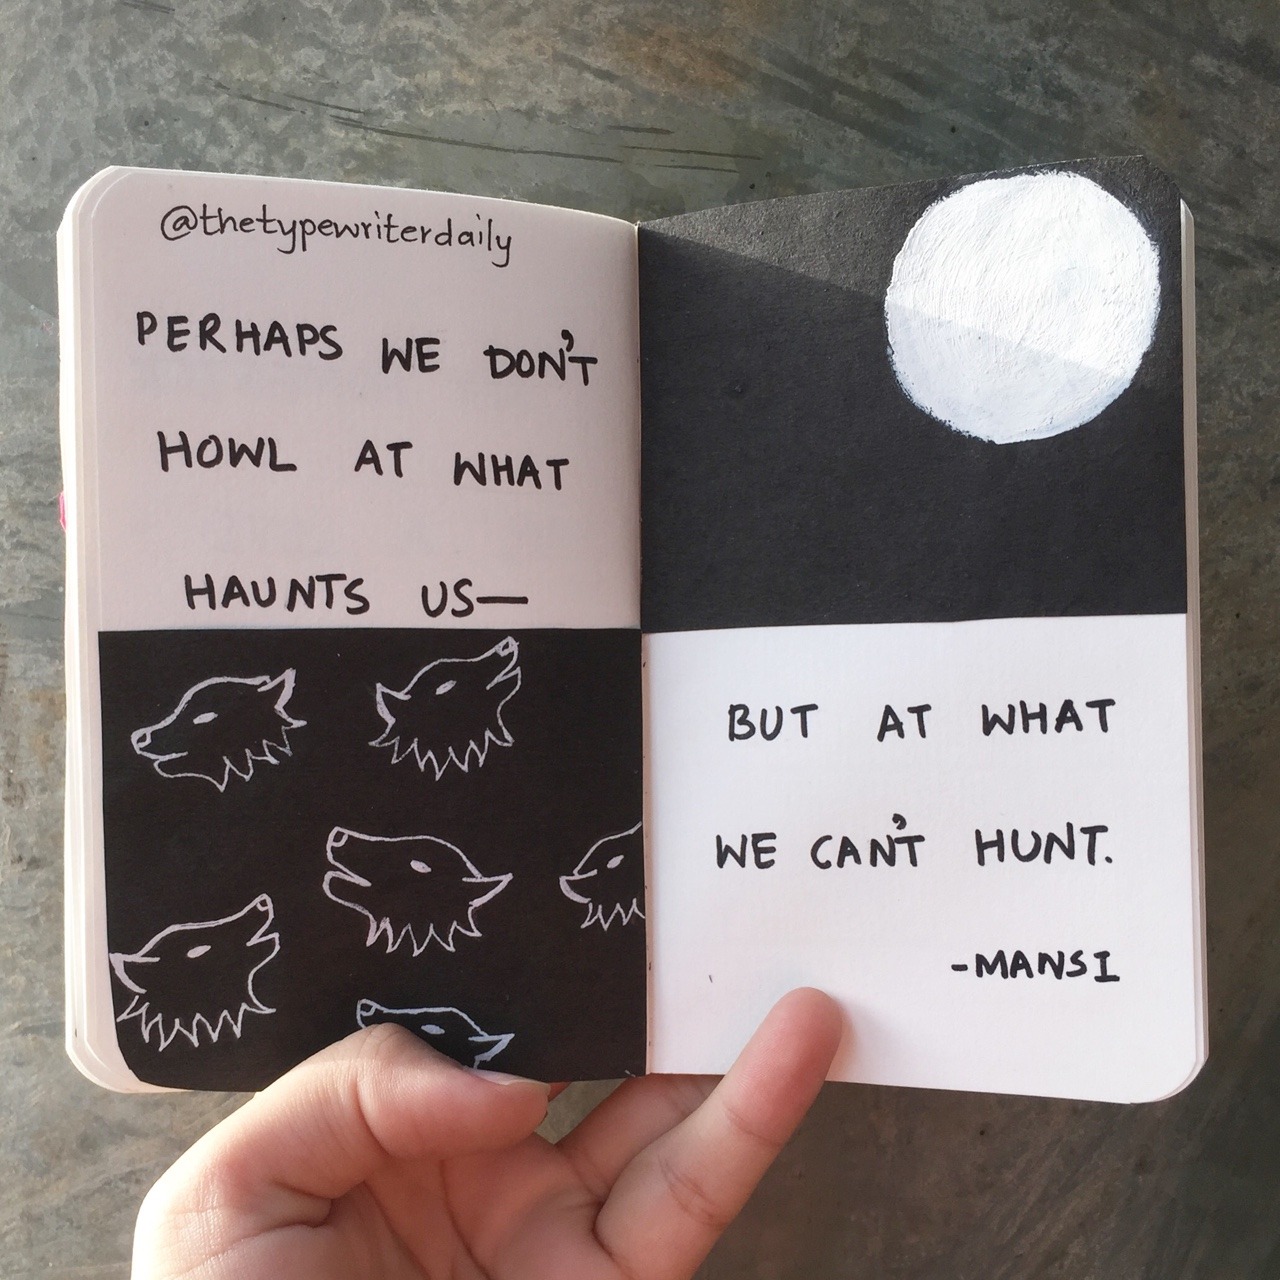 @thetypewriterdaily
PERHAPS WE DON'T
HOWL AT WHAT
HAUNTS US—
BUT AT WHAT
WE CAN'T HUNT.
-MANSI